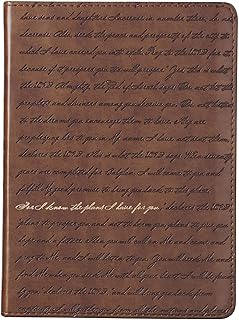 sons and daughters. Increase in number there, do not
decrease. Also, seek the peace and prosperity of the city to
which I have carried you into exile. Pray to the LORD for it,
because if it prospers, you too will prosper." Yes, this is what
the LORD Almighty, the God of Israel, says: "Do not let the
prophets and diviners among you deceive you. Do not listen
to the dreams you encourage them to have. They are
prophesying lies to you in My name. I have not sent them,"
declares the LORD. This is what the LORD says: "When seventy
years are completed for Babylon, I will come to you and
fulfill My good promise to bring you back to this place.
For I know the plans I have for you," declares the LORD,
"plans to prosper you and not to harm you, plans to give you
hope and a future. Then you will call on Me and come and
pray to Me, and I will listen to you. You will seek Me and
find Me when you seek Me with all your heart. I will be found
by you," declares the LORD, "and will bring you back from